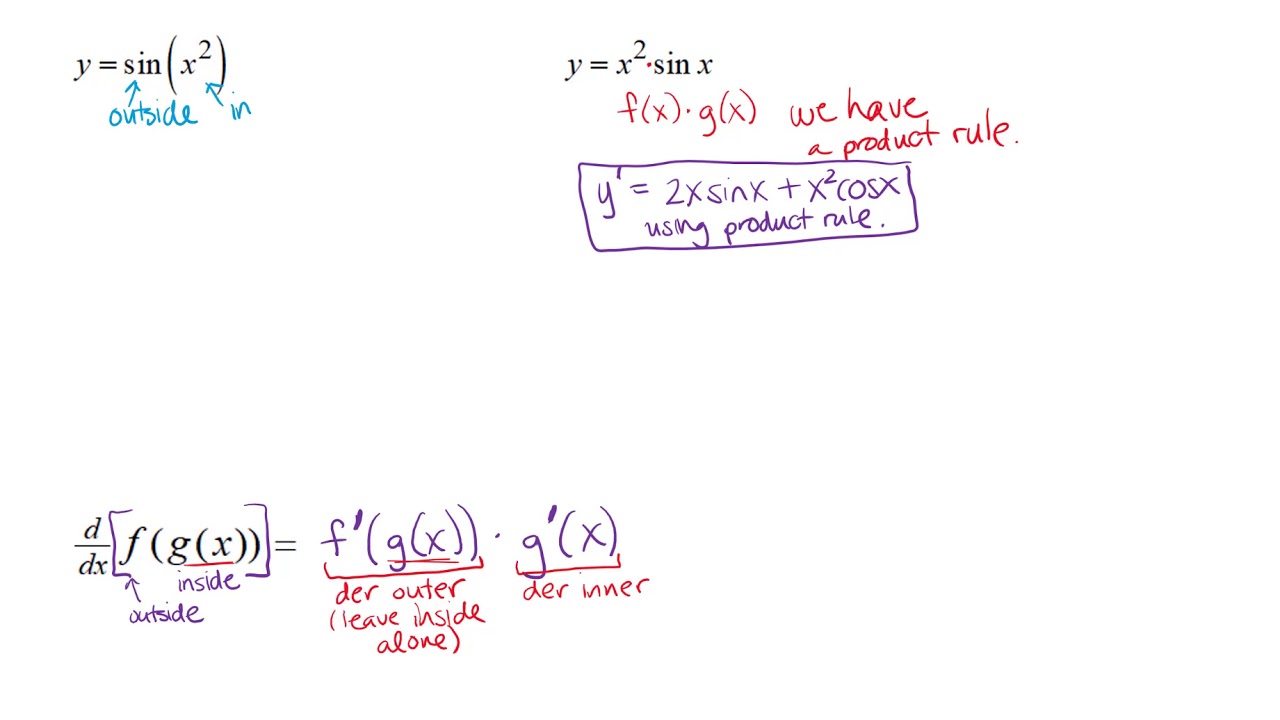 y = sin(x²)
outside in
y = x² · sin x
f(x) · g(x) we have
a product rule.
y' = 2x sinx + x² cosx
using product rule.
d/dx [f(g(x))] = f'(g(x)) · g'(x)
inside
outside
der outer
(leave inside
alone)
der inner